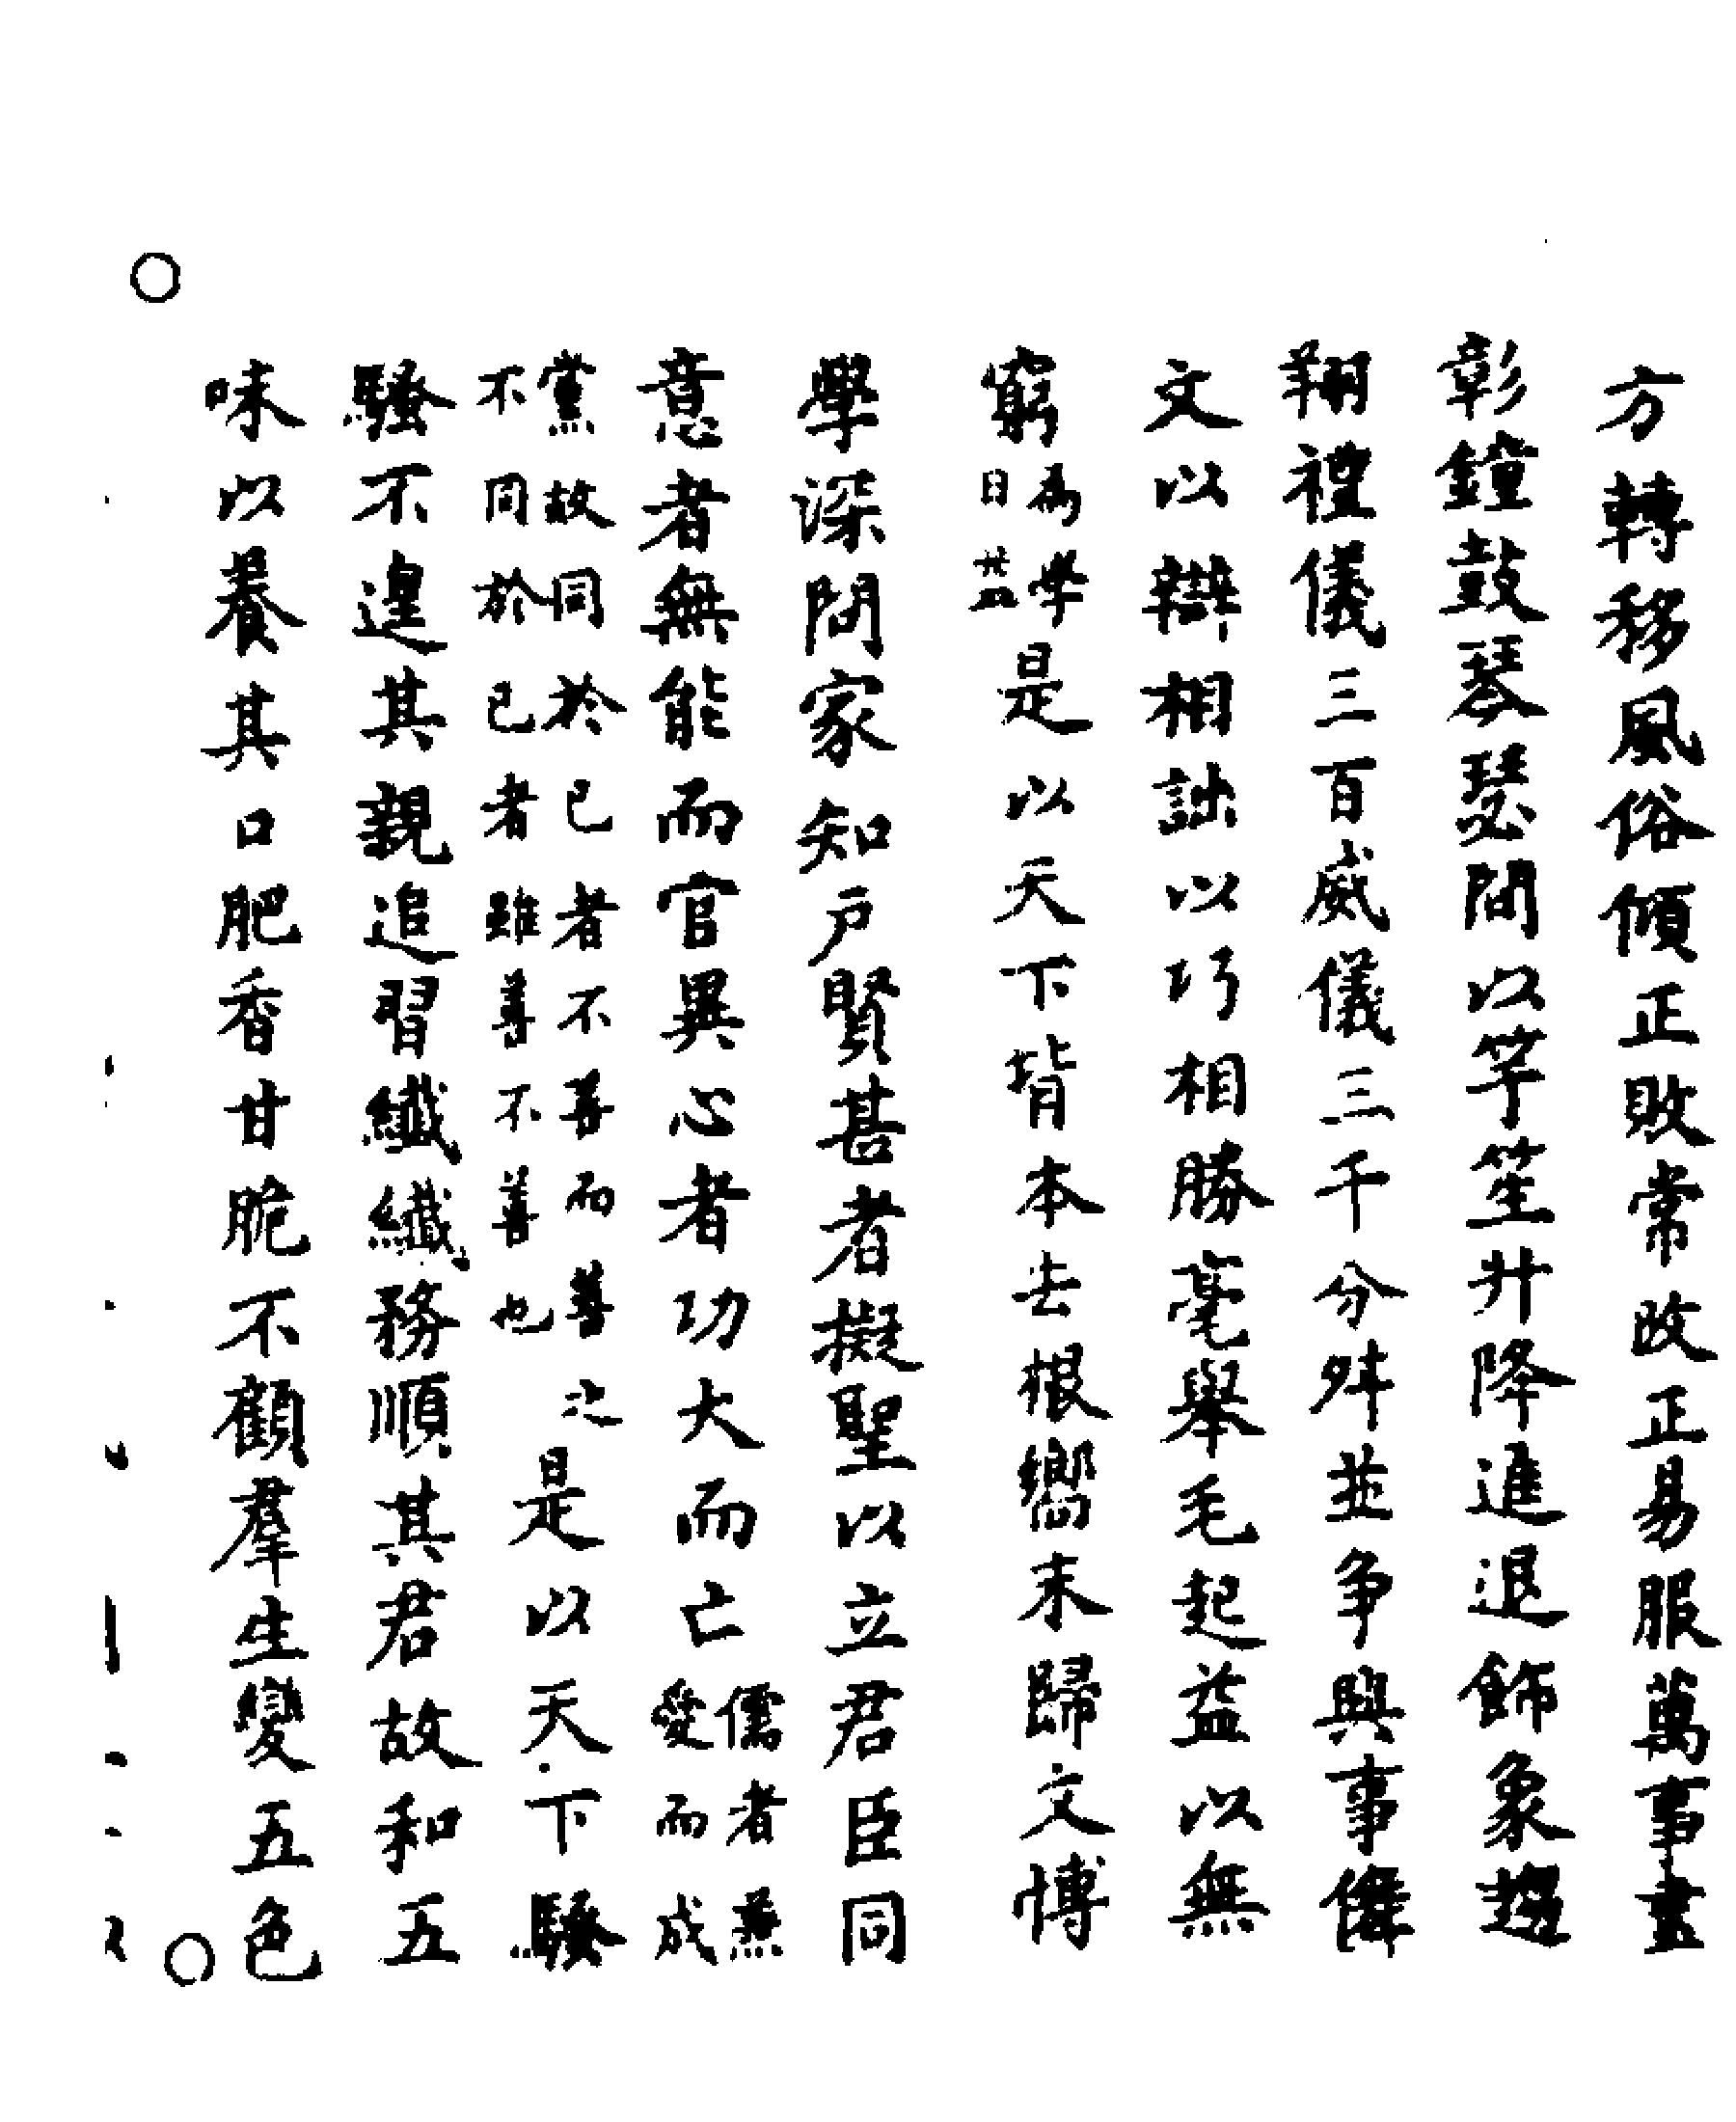 方轉移風俗傾正敗常改正易服萬事畫
彰鐘鼓琴瑟間以竽笙升降進退飾象趨
翔禮儀三百威儀三千分舛並爭興事儛
文以辯相詘以巧相勝毫舉毛起益以無
窮為學日益是以天下背本去根嚮末歸文博
學深問家知戶賢甚者擬聖以立君臣同
意者無能而官異心者功大而亡儒者兼愛而成
黨故同於己者不善而善之不同於己者雖善不善也是以天下騷
騷不遑其親追習纖纖務順其君故和五
味以養其口肥香甘脆不顧羣生變五色